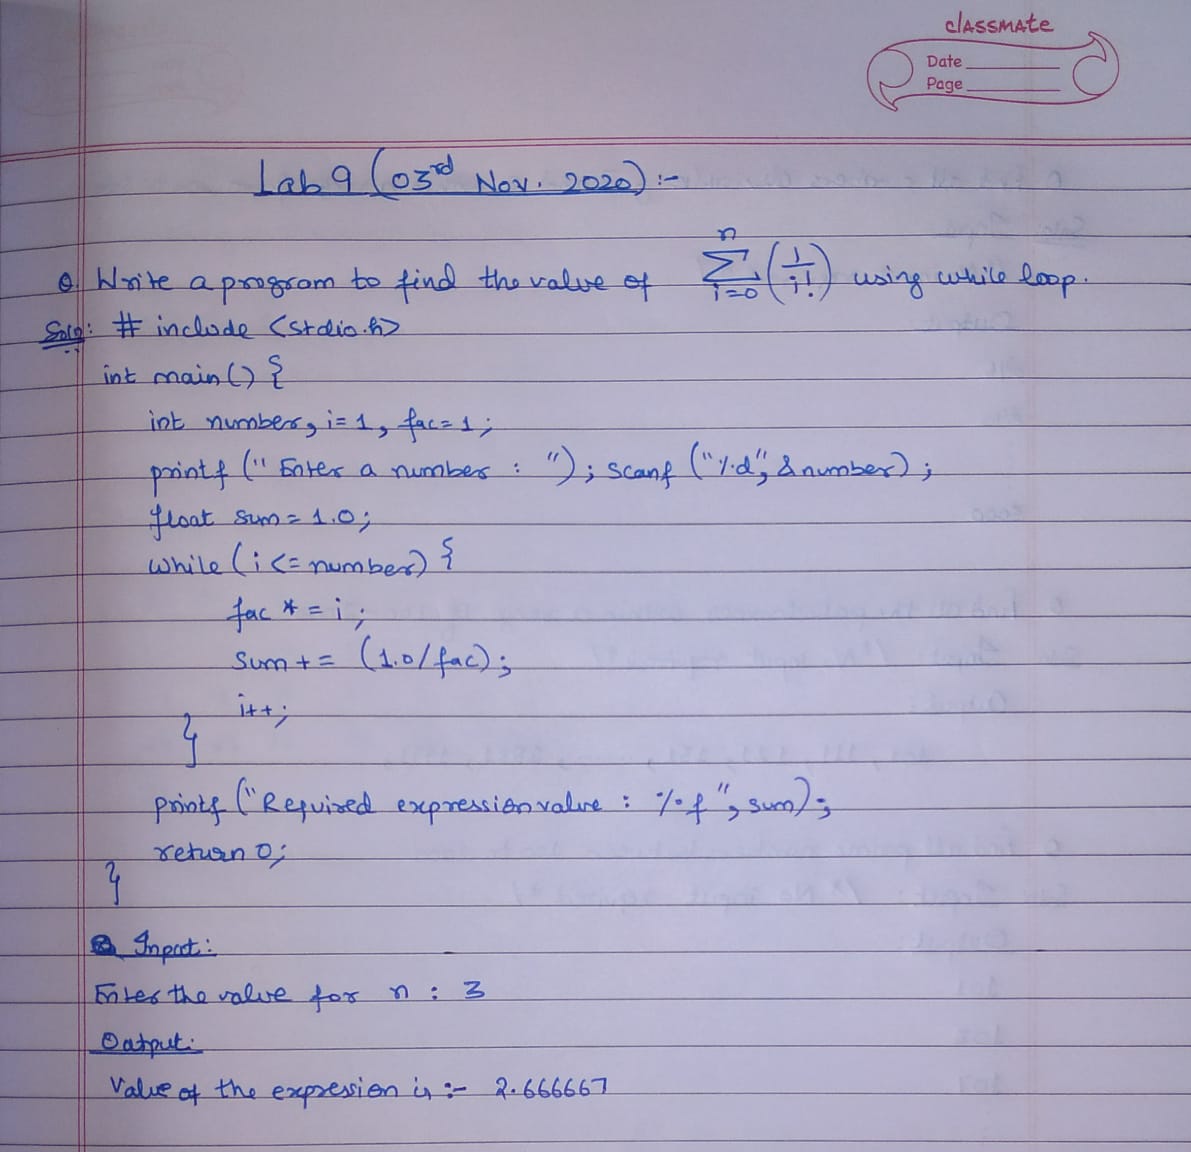 classmate
Date
Page
Lab 9 (03rd Nov. 2020) :-
Q. Write a program to find the value of n∑i=0 (1/i!) using while loop.
Soln: # include <stdio.h>
int main () {
int number, i=1, fac=1;
printf (" Enter a number : "); scanf ("%d", &number);
float sum = 1.0;
while (i <= number) {
fac * = i;
sum + = (1.0/fac);
i++;
}
printf ("Required expression value : %f", sum);
return 0;
}
Input:
Enter the value for n : 3
Output:
Value of the expression is :- 2.666667